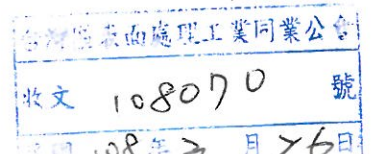 台灣區表面處理工業同業公會
收文 108070 號
108年 月 26日